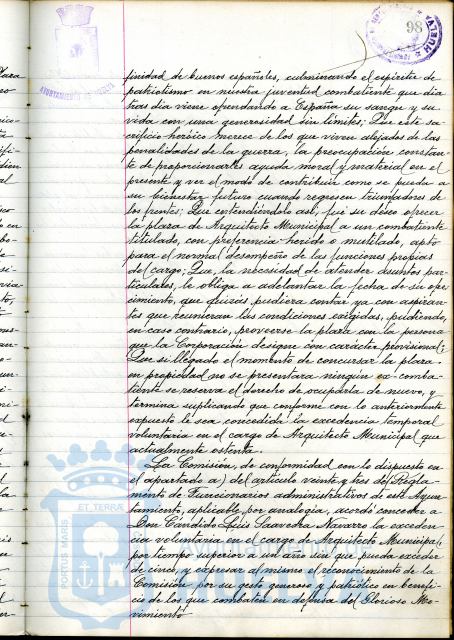 98
AYUNTAMIENTO DE HUELVA
HUELVA
finidad de buenos españoles, culminando el espíritu de
patriotismo en nuestra juventud combatiente que dia
tras dia viene ofrendando a España su sangre y su
vida con una generosidad sin límites; Que este sa-
crificio heróico merece de los que viven alejados de las
penalidades de la guerra, la preocupación constan-
te de proporcionarles ayuda moral y material en el
presente y ver el modo de contribuir como se pueda a
su bienestar futuro cuando regresen triunfadores de
los frentes; Que entendiéndolo así, fué su deseo ofrecer
la plaza de Arquitecto Municipal a un combatiente
titulado, con preferencia herido o mutilado, apto
para el normal desempeño de las funciones propias
del cargo; Que, la necesidad de atender asuntos par-
ticulares, le obliga a adelantar la fecha de su ofre-
cimiento, que quizás pudiera contar ya con aspiran-
tes que reunieran las condiciones exigidas, pudiendo,
en caso contrario, proveerse la plaza con la persona
que la Corporación designe con carácter provisional;
Que si llegado el momento de concursar la plaza
en propiedad no se presentara ningún ex-comba-
tiente se reserva el derecho de ocuparla de nuevo, y
termina suplicando que conforme con lo anteriormente
expuesto le sea concedida la excedencia temporal
voluntaria en el cargo de Arquitecto Municipal que
actualmente ostenta.
La Comisión, de conformidad con lo dispuesto en
el apartado a) del artículo veinte y tres del Regla-
mento de Funcionarios administrativos de este Ayun-
tamiento, aplicable por analogía, acordó conceder a
Don Cándido Luis Saavedra Navarro la exceden-
cia voluntaria en el cargo de Arquitecto Municipal,
por tiempo superior a un año sin que pueda exceder
de cinco, y expresar al mismo el reconocimiento de la
Comisión por su gesto generoso y patriótico en benefi-
cio de los que combaten en defensa del Glorioso Mo-
vimiento
PORTUS MARIS
ET TERRÆ